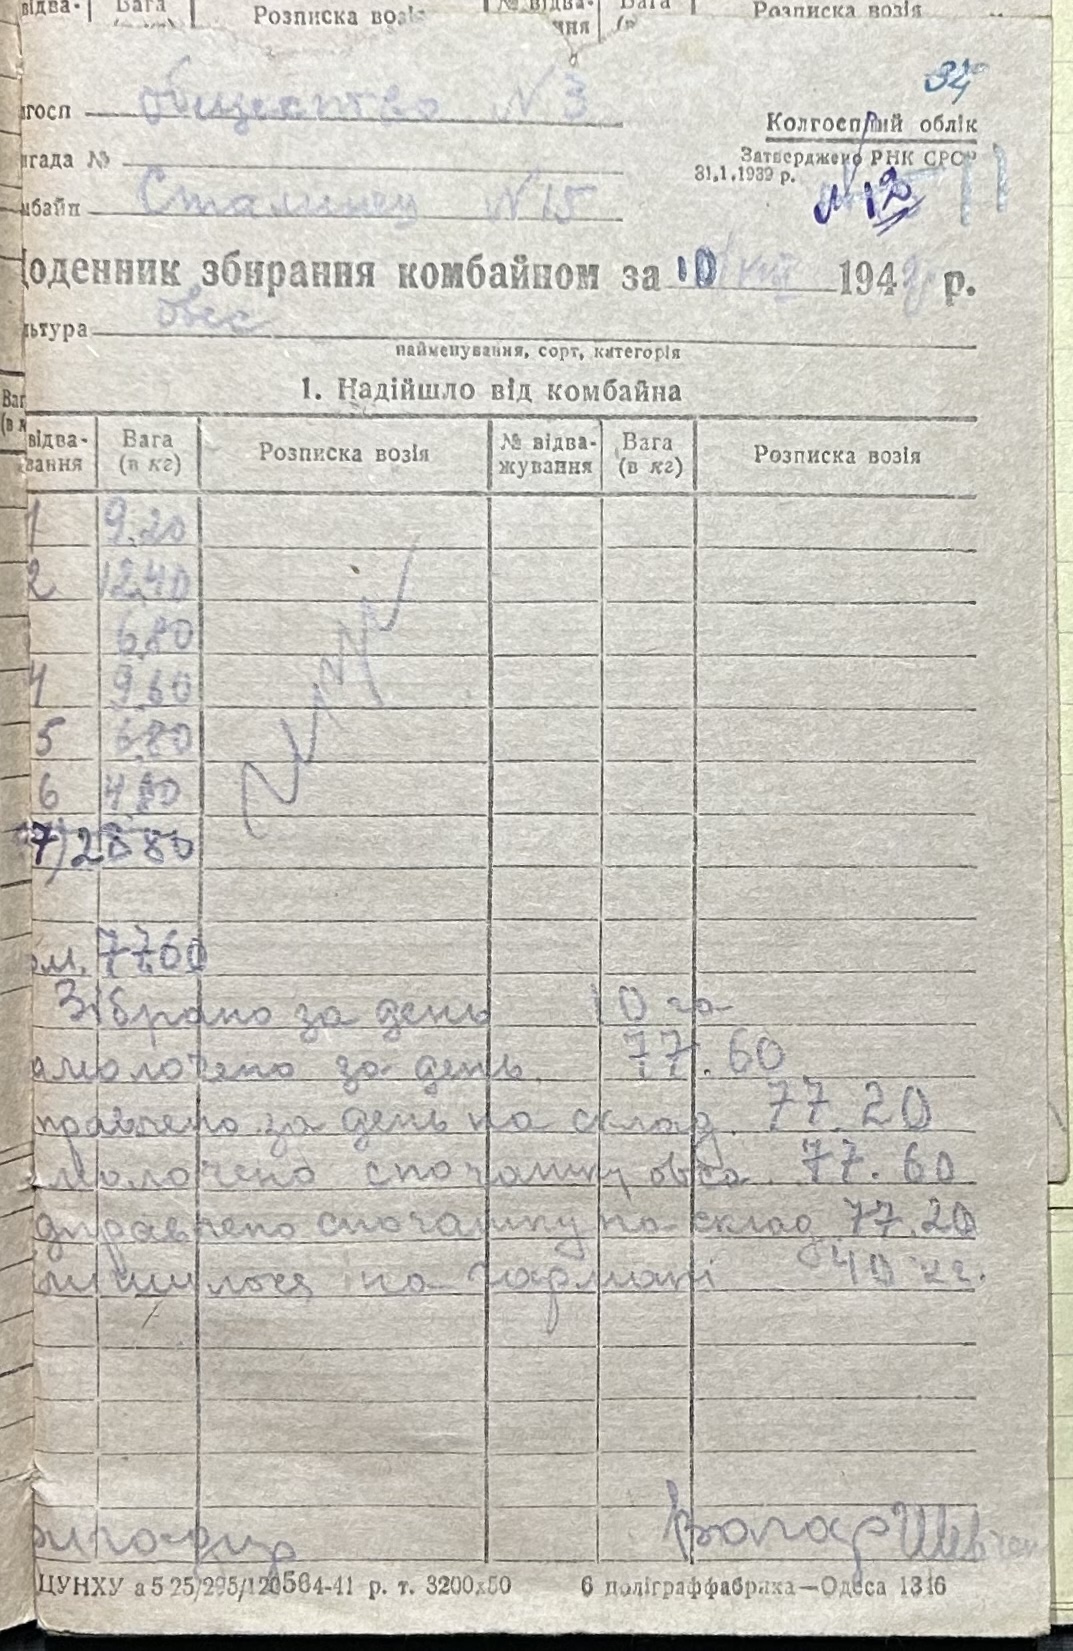 відва- Вага Розписка возія № відва- Вага Розписка возія
ння
34
госп общество N 3
Колгоспний облік
гада №
Затверджено РНК СРСР
31.1.1939 р.
мбайн Сталинец N 15
N 12
оденник збирання комбайном за 10 VIII 194 р.
льтура овес
найменування, сорт, категорія
1. Надійшло від комбайна
відва- Вага Розписка возія № відва- Вага Розписка возія
вання (в кг) жування (в кг)
1 9.20
2 12.40
6.80
4 9.60
5 6.80
6 4.00
7) 28 80
ом. 7760
Зібрано за день 10 га
амолочено за день. 77.60
правлено за день на склад. 77.20
молочено спочатку овса 77.60
дправлено спочатку на склад 77.20
лишилося на гармані 40 кг.
Шевчен
ЦУНХУ а 5 25/295/120564-41 р. т. 3200х50 6 поліграффабрика—Одеса 1316